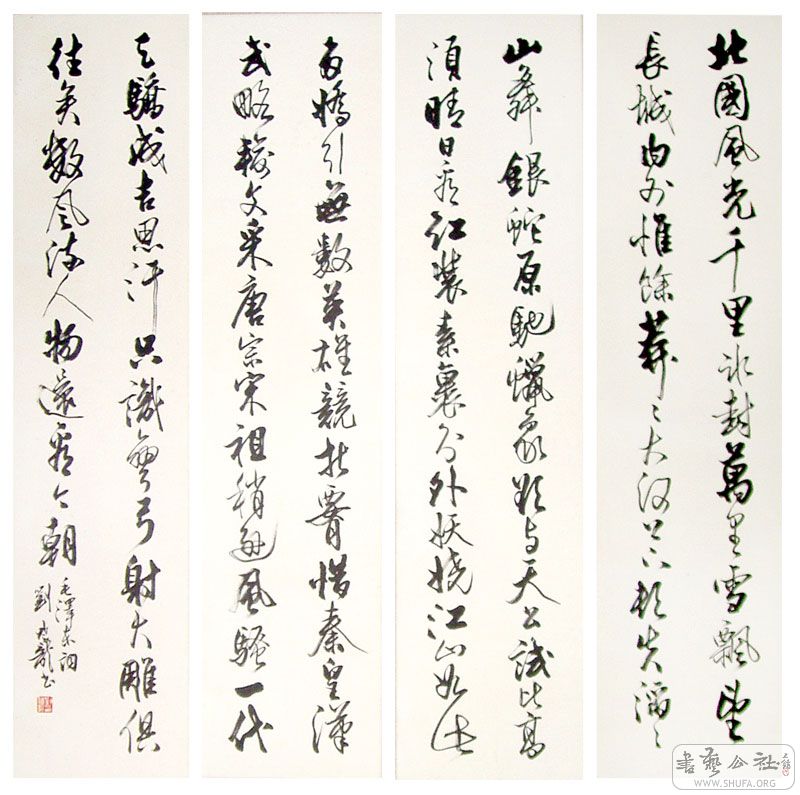 北國風光千里冰封萬里雪飄望
長城內外惟餘莽〻大河上下頓失滔〻
山舞銀蛇原馳蠟象欲与天公試比高
須晴日看紅裝素裹分外妖嬈江山如此
多嬌引無數英雄競折腰惜秦皇漢
武略輸文采唐宗宋祖稍遜風騷一代
天驕成吉思汗只識彎弓射大雕俱
往矣數風流人物還看今朝
毛澤東詞
劉龍書
書藝公社
WWW.SHUFA.ORG